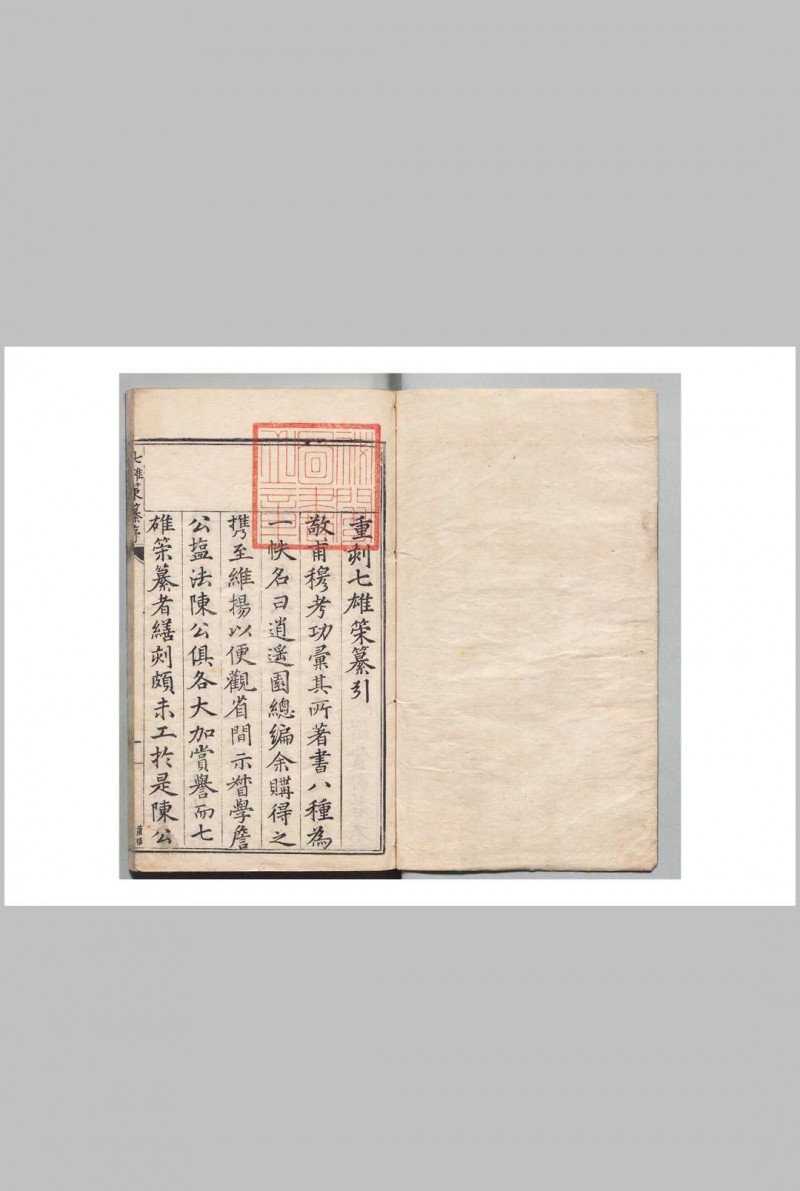 重刻七雄策纂引
敬甫穆考功彙其所著書八種為
一帙名曰逍遥園總編余購得之
携至維揚以便觀省間示督學詹
公塩法陳公俱各大加賞譽而七
雄策纂者繕刻頗未工扵是陳公
七雄策纂序
一